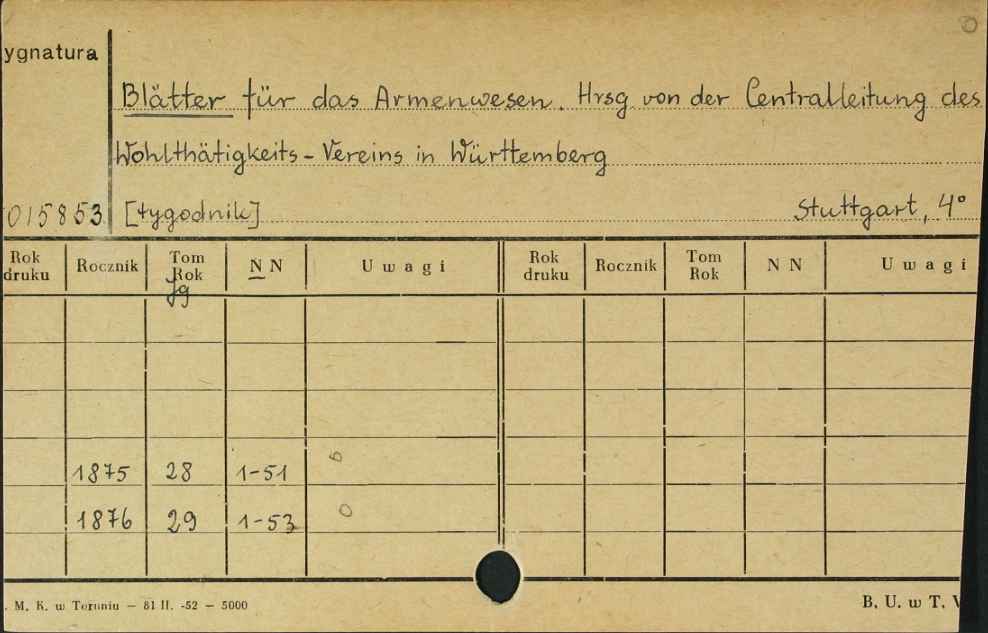 ygnatura
Blätter für das Armenwesen. Hrsg von der Centralleitung des
Wohlthätigkeits-Vereins in Württemberg
015853 [tygodnik] Stuttgart, 4°
Rok druku Rocznik Tom Rok Jg N N Uwagi Rok druku Rocznik Tom Rok N N Uwagi
1875 28 1-51
1876 29 1-53
. M. K. w Toruniu — 81 II. -52 — 5000 B. U. w T.